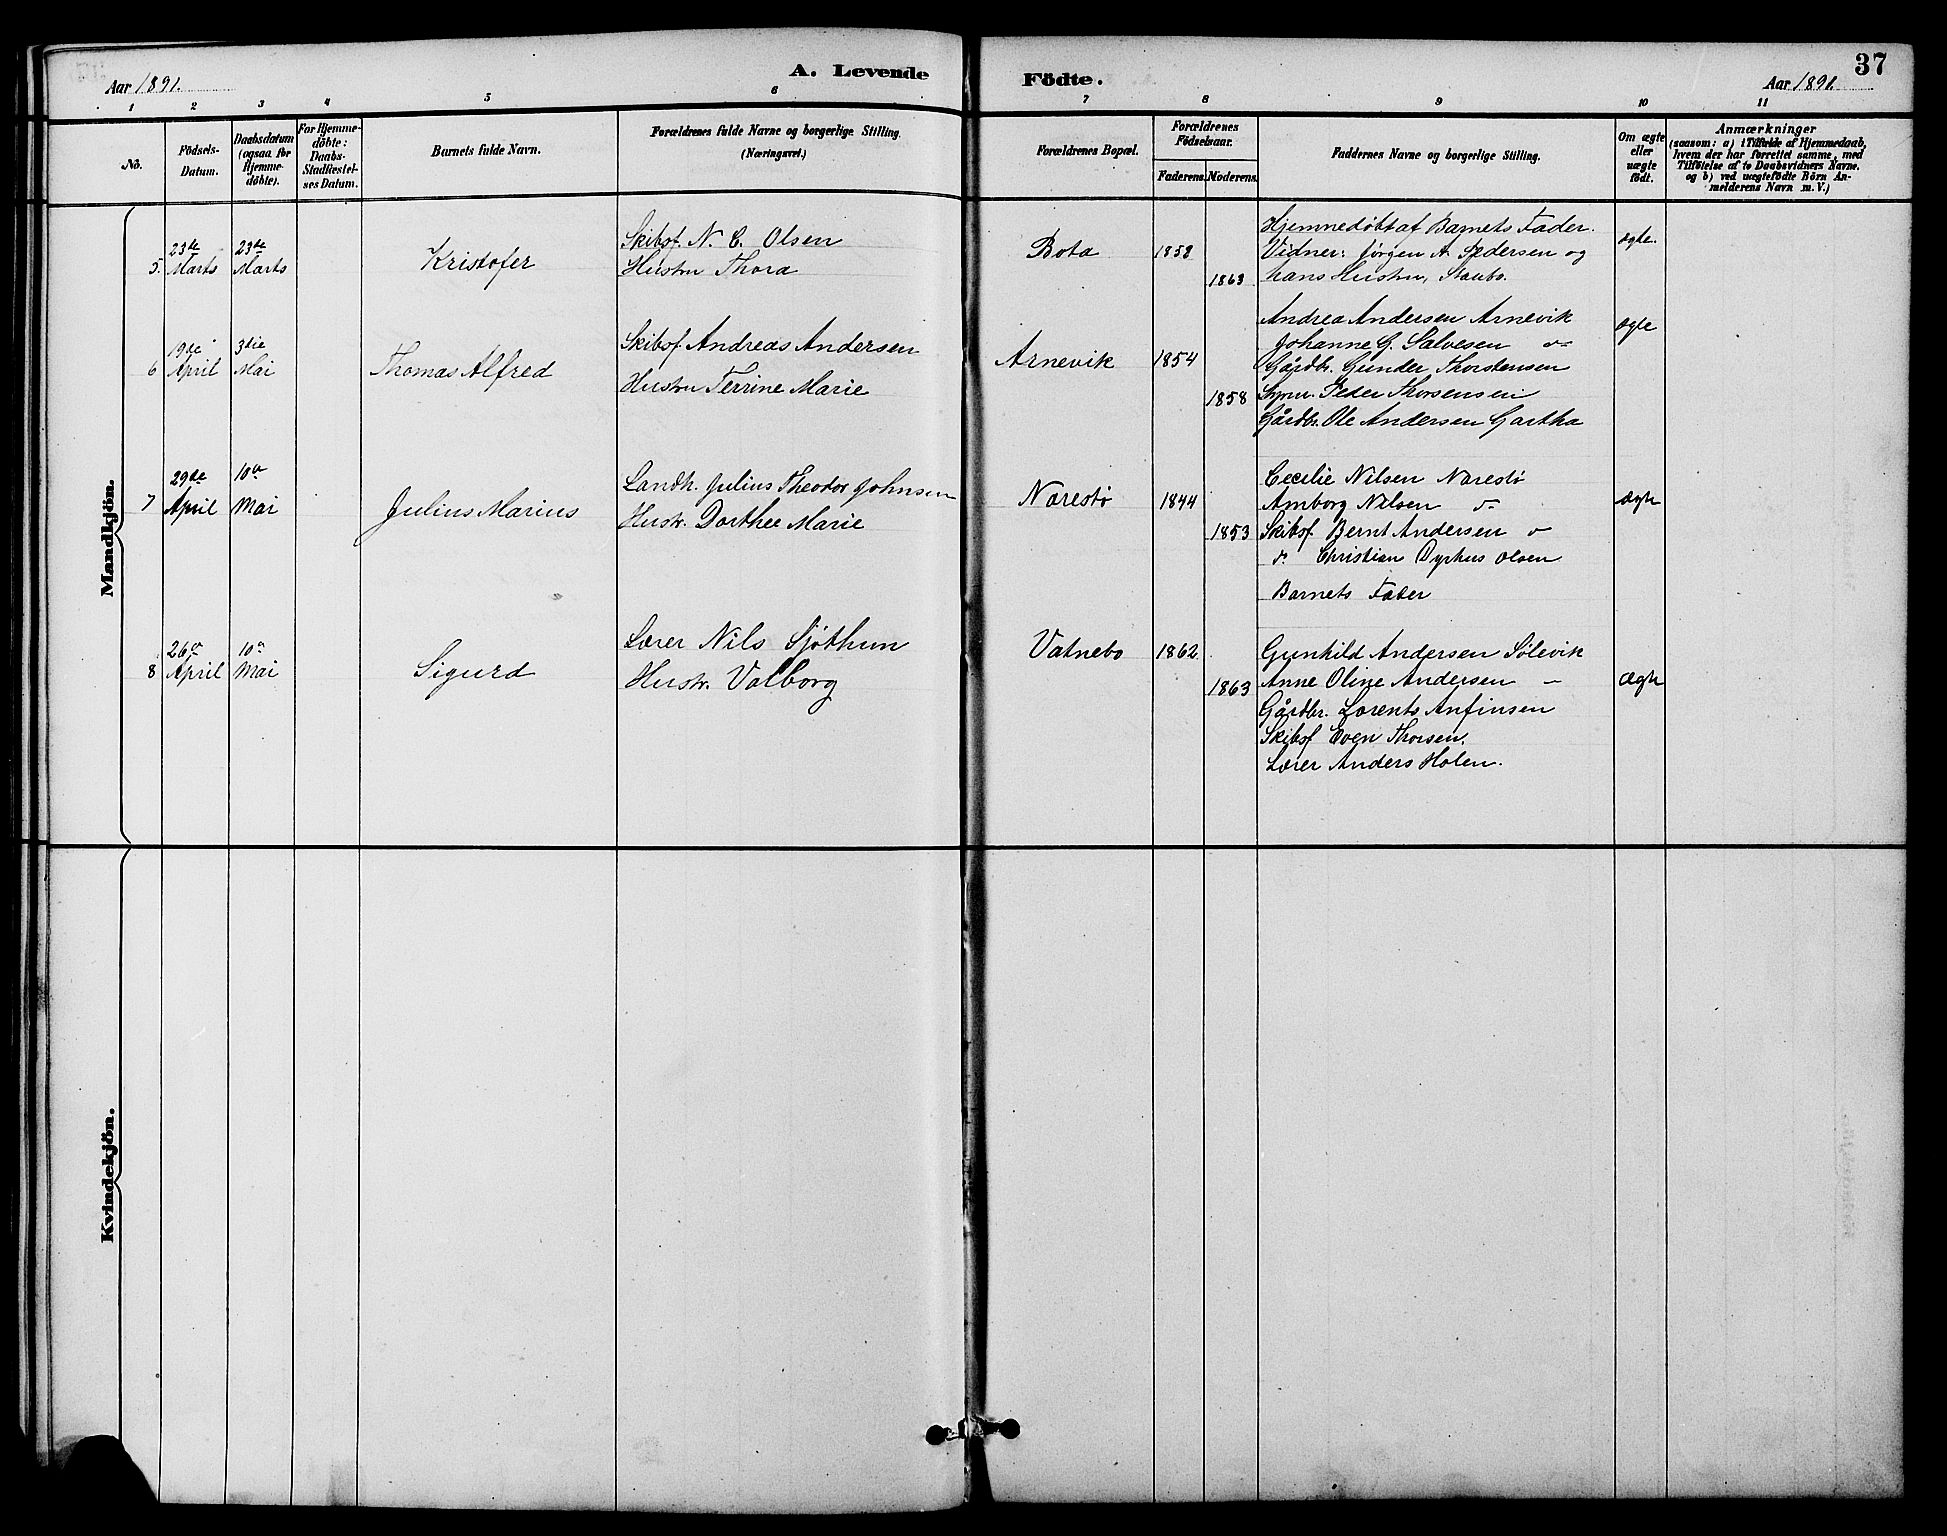 37
Aar 1891.
A. Levende Födte.
Aar 1891.
1 2 3 4 5 6 7 8 9 10 11
No.
Födsels-
Datum.
Daabsdatum
(ogsaa for
Hjemme-
döbte).
For Hjemme-
döbte:
Daabs-
Stadfæstel-
ses Datum.
Barnets fulde Navn.
Forældrenes fulde Navne og borgerlige Stilling.
(Næringsvei.)
Forældrenes Bopæl.
Forældrenes
Födselsaar.
Faderens. Moderens.
Faddernes Navne og borgerlige Stilling.
Om ægte
eller
uægte
födt.
Anmærkninger
(saasom: a) i Tilfælde af Hjemmedaab,
hvem der har forrettet samme, med
Tilföielse af to Daabsvidners Navne.
og b) ved uægtefödte Börn An-
melderens Navn m.V.)
Mandkjön.
5. 23de Marts
23de Marts
Kristofer
Skibsf. N. C. Olsen
Hustru Thora
Bota
1858
1863
Hjemmedøbt af Barnets Fader.
Vidner: Jørgen A. Pedersen og
hans Hustru, Staubo.
ægte.
6 19de April
3die Mai
Thomas Alfred
Skibsf. Andreas Andersen
Hustru Terrine Marie
Arnevik
1854
1858
Andrea Andersen Arnevik
Johanne G. Salvesen
Gårdbr. Gunder Thorstensen
Peder Thorsensen
Gårdbr. Ole Andersen Gartha
ægte
7 29de April
10de Mai
Julius Marius
Landh. Julius Theodor Johnsen
Hustr. Dorthee Marie
Narestø
1844
1853
Cecilie Nilsen Narestø
Amborg Nilsen
Skibsf. Bernt Andersen
Christian Dyrhus Olsen
Barnets Fader
Ægte
8 26de April
10de Mai
Sigurd
Lærer Nils Sjøthun
Hustr. Valborg
Vatnebo
1862
1863
Gunhild Andersen Sølevik
Anne Oline Andersen -
Gårdbr. Lorents Anfinsen
Skibsf Even Thorsen.
Lærer Anders Holen.
Ægte
Kvindekjön.